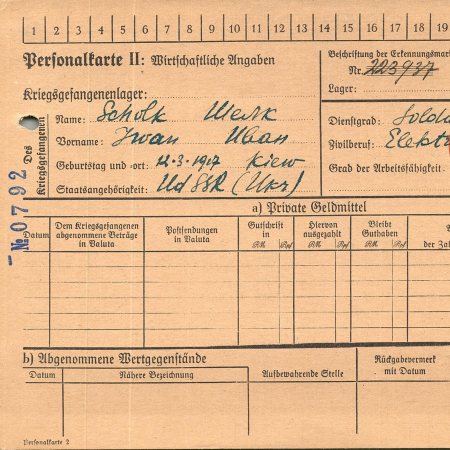 1 2 3 4 5 6 7 8 9 10 11 12 13 14 15 16 17 18 19
Personalkarte II: Wirtschaftliche Angaben
Beschriftung der Erkennungsmar
Nr. 223937
Lager:
Kriegsgefangenenlager:
Des Kriegsgefangenen
Name: Scholk Шелк
Vorname: Iwan Иван
Geburtstag und -ort: 12.3.1907 Kiew
Staatsangehörigkeit: UdSSR (Ukr)
Dienstgrad: Solda
Zivilberuf: Elektr
Grad der Arbeitsfähigkeit:
№ 0792
a) Private Geldmittel
Datum
Dem Kriegsgefangenen abgenommene Beträge in Valuta
Postsendungen in Valuta
Gutschrift in
RM. Rpf
Hiervon ausgezahlt
RM. Rpf
Bleibt Guthaben
RM. Rpf
der Zah
b) Abgenommene Wertgegenstände
Datum
Nähere Bezeichnung
Aufbewahrende Stelle
Rückgabevermerk mit Datum
Personalkarte 2